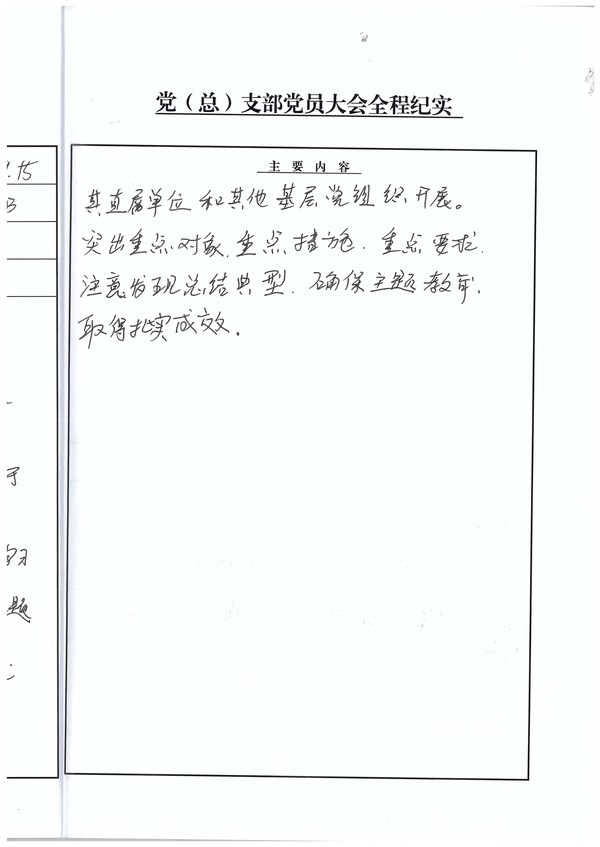 党（总）支部党员大会全程纪实
主要内容
其直属单位和其他基层党组织开展。
突出重点对象、重点措施、重点要求，
注意发现总结典型，确保主题教育，
取得扎实成效。
.15
3
于
习
题